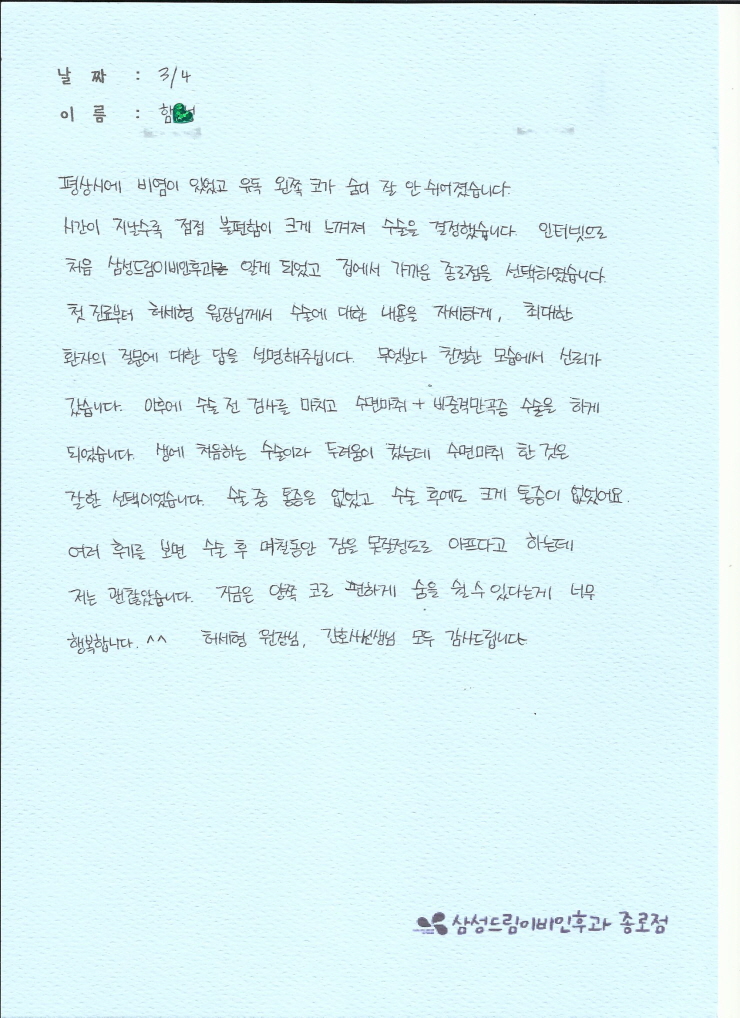 날 짜 : 3/4
이 름 : 함
평상시에 비염이 있었고 유독 왼쪽 코가 숨이 잘 안 쉬어졌습니다.
시간이 지날수록 점점 불편함이 크게 느껴져 수술을 결정했습니다 인터넷으로
처음 삼성드림이비인후과를 알게 되었고 집에서 가까운 종로점을 선택하였습니다.
첫 진료부터 허세형 원장님께서 수술에 대한 내용을 자세하게, 최대한
환자의 질문에 대한 답을 설명해주십니다. 무엇보다 친절한 모습에서 신뢰가
갔습니다. 이후에 수술 전 검사를 마치고 수면마취 + 비중격만곡증 수술을 하게
되었습니다. 생에 처음하는 수술이라 두려움이 컸는데 수면마취 한 것은
잘한 선택이었습니다. 수술 중 통증은 없었고 수술 후에도 크게 통증이 없었어요.
여러 후기를 보면 수술 후 며칠동안 잠을 못잘정도로 아프다고 하는데
저는 괜찮았습니다. 지금은 양쪽 코로 편하게 숨을 쉴 수 있다는게 너무
행복합니다. ^^ 허세형 원장님, 간호사선생님 모두 감사드립니다
삼성드림이비인후과 종로점